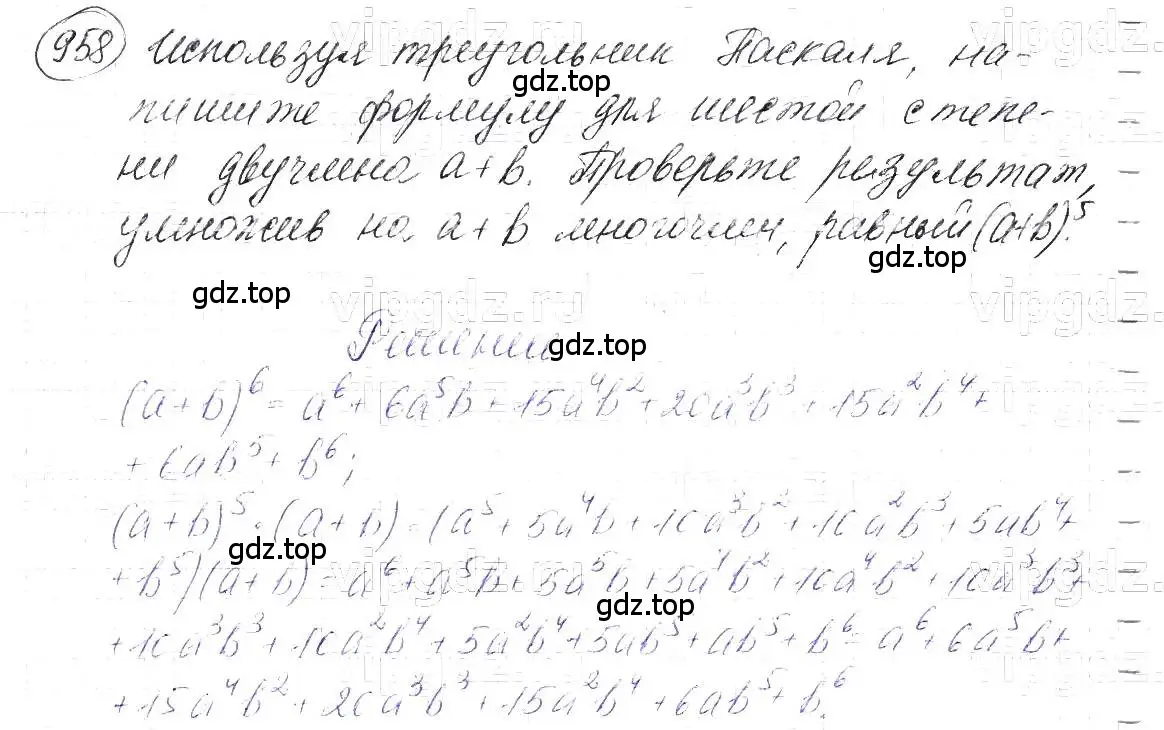 958 Используя треугольник Паскаля, на-
пишите формулу для шестой степе-
ни двучлена a+b. Проверьте результат,
умножив на a+b многочлен, равный (a+b)⁵.
Решение
(a+b)⁶ = a⁶ + 6a⁵b + 15a⁴b² + 20a³b³ + 15a²b⁴ +
+ 6ab⁵ + b⁶;
(a+b)⁵ · (a+b) = (a⁵ + 5a⁴b + 10a³b² + 10a²b³ + 5ab⁴ +
+ b⁵)(a+b) = a⁶ + a⁵b + 5a⁵b + 5a⁴b² + 10a⁴b² + 10a³b³ +
+ 10a³b³ + 10a²b⁴ + 5a²b⁴ + 5ab⁵ + ab⁵ + b⁶ = a⁶ + 6a⁵b +
+ 15a⁴b² + 20a³b³ + 15a²b⁴ + 6ab⁵ + b⁶.
gdz.top
gdz.top
gdz.top
gdz.top
gdz.top
gdz.top
vipgdz.ru
vipgdz.ru